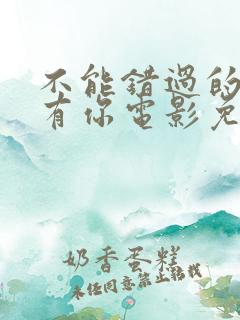 不能错过的
有你电影免
奶香蛋糕
未经同意禁止转载